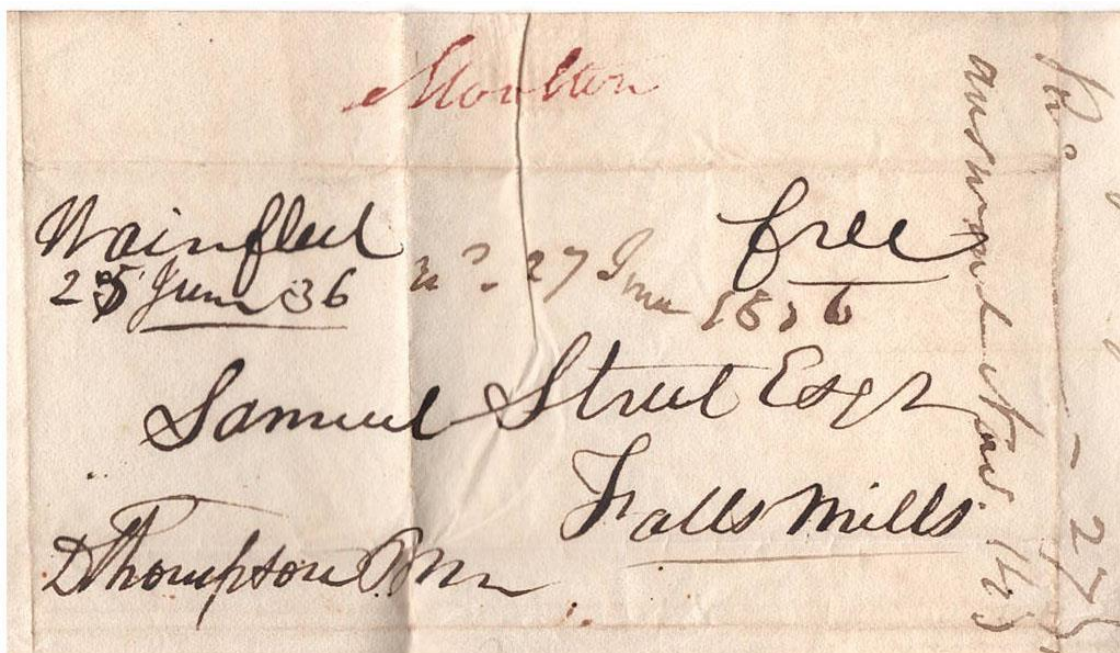 Moulton
Wainfleet
25 June 36
free
27 June 1836
Samuel Street Esqr
Falls Mills
D Thompson PM
answered
27